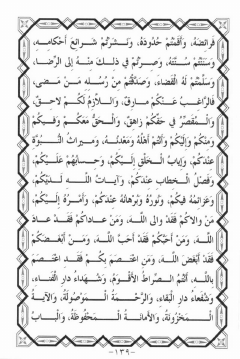 فَرَائِضَهُ، وَأَقَمْتُمْ حُدُودَهُ، وَنَشَرْتُمْ شَرَايِعَ أَحْكَامِهِ،
وَسَنَنْتُمْ سُنَّتَهُ، وَصِرْتُمْ فِي ذٰلِكَ مِنْهُ إِلَى الرِّضَا،
وَسَلَّمْتُمْ لَهُ الْقَضَاءَ، وَصَدَّقْتُمْ مِنْ رُسُلِهِ مَنْ مَضىٰ،
فَالرَّاغِبُ عَنْكُمْ مَارِقٌ، وَاللَّازِمُ لَكُمْ لَاحِقٌ،
وَالْمُقَصِّرُ فِي حَقِّكُمْ زَاهِقٌ، وَالْحَقُّ مَعَكُمْ وَفِيكُمْ
وَمِنْكُمْ وَإِلَيْكُمْ وَأَنْتُمْ أَهْلُهُ وَمَعْدِنُهُ، وَمِيرَاثُ النُّبُوَّةِ
عِنْدَكُمْ، وَإِيَابُ الْخَلْقِ إِلَيْكُمْ، وَحِسَابُهُمْ عَلَيْكُمْ،
وَفَصْلُ الْخِطَابِ عِنْدَكُمْ، وَآيَاتُ اللَّهِ لَدَيْكُمْ،
وَعَزَائِمُهُ فِيكُمْ، وَنُورُهُ وَبُرْهَانُهُ عِنْدَكُمْ، وَأَمْرُهُ إِلَيْكُمْ،
مَنْ وَالَاكُمْ فَقَدْ وَالَى اللَّهَ، وَمَنْ عَادَاكُمْ فَقَدْ عَادَ
اللَّهَ، وَمَنْ أَحَبَّكُمْ فَقَدْ أَحَبَّ اللَّهَ، وَمَنْ أَبْغَضَكُمْ
فَقَدْ أَبْغَضَ اللَّهَ، وَمَنِ اعْتَصَمَ بِكُمْ فَقَدِ اعْتَصَمَ
بِاللَّهِ، أَنْتُمُ الصِّرَاطُ الْأَقْوَمُ، وَشُهَدَاءُ دَارِ الْفَنَاءِ،
وَشُفَعَاءُ دَارِ الْبَقَاءِ، وَالرَّحْمَةُ الْمَوْصُولَةُ، وَالْآيَةُ
الْمَخْزُونَةُ، وَالْأَمَانَةُ الْمَحْفُوظَةُ، وَالْبَابُ
-١٣٩-